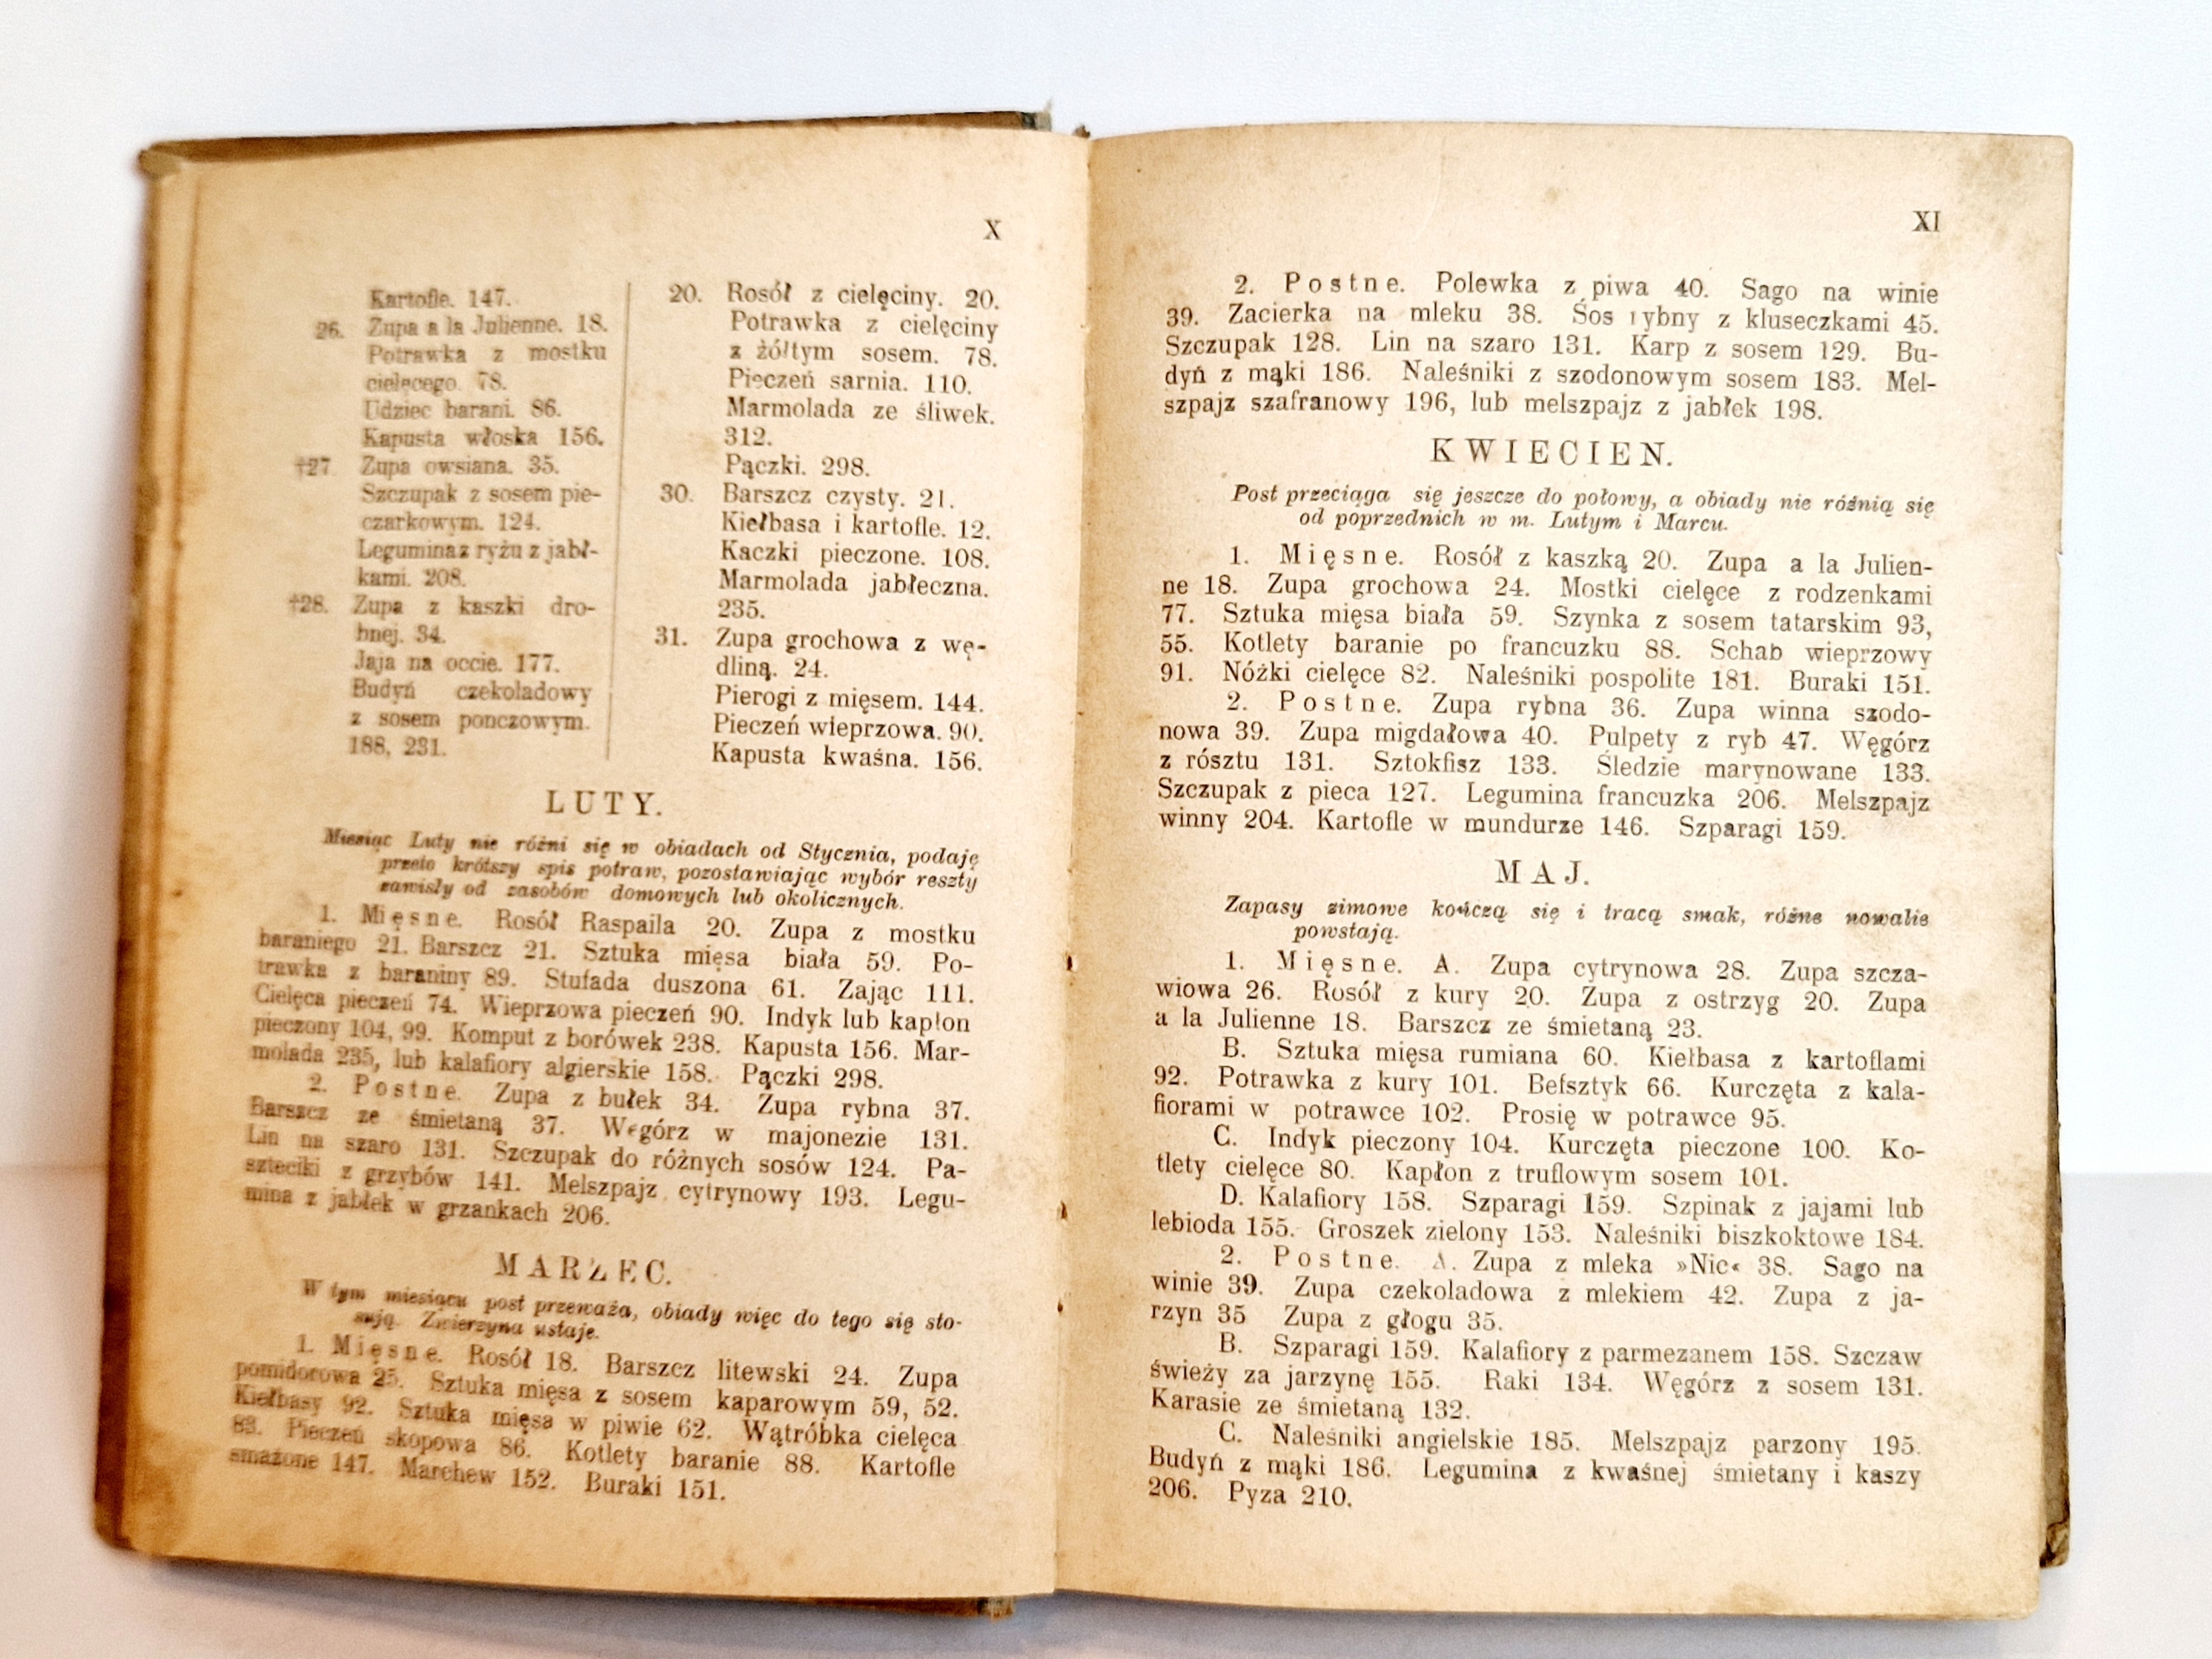 X
Kartofle. 147.
26. Zupa a la Julienne. 18.
Potrawka z mostku
cielęcego. 78.
Udziec barani. 86.
Kapusta włoska 156.
†27 Zupa owsiana. 35.
Szczupak z sosem pie-
czarkowym. 124.
Legumina z ryżu z jabł-
kami. 208.
†28. Zupa z kaszki dro-
bnej. 34.
Jaja na occie. 177.
Budyń czekoladowy
z sosem ponczowym.
188, 231.
20. Rosół z cielęciny. 20.
Potrawka z cielęciny
z żółtym sosem. 78.
Pieczeń sarnia. 110.
Marmolada ze śliwek.
312.
Pączki. 298.
30. Barszcz czysty. 21.
Kiełbasa i kartofle. 12.
Kaczki pieczone. 108.
Marmolada jabłeczna.
235.
31. Zupa grochowa z wę-
dliną. 24.
Pierogi z mięsem. 144.
Pieczeń wieprzowa. 90.
Kapusta kwaśna. 156.
LUTY.
Miesiąc Luty nie różni się w obiadach od Stycznia, podaję
przeto krótszy spis potraw, pozostawiając wybór reszty
zawisły od zasobów domowych lub okolicznych.
1. Mięsne. Rosół Raspaila 20. Zupa z mostku
baraniego 21. Barszcz 21. Sztuka mięsa biała 59. Po-
trawka z baraniny 89. Stufada duszona 61. Zając 111.
Cielęca pieczeń 74. Wieprzowa pieczeń 90. Indyk lub kapłon
pieczony 104, 99. Komput z borówek 238. Kapusta 156. Mar-
molada 235, lub kalafiory algierskie 158. Pączki 298.
2. Postne. Zupa z bułek 34. Zupa rybna 37.
Barszcz ze śmietaną 37. Węgórz w majonezie 131.
Lin na szaro 131. Szczupak do różnych sosów 124. Pa-
szteciki z grzybów 141. Melszpajz cytrynowy 193. Legu-
mina z jabłek w grzankach 206.
MARZEC.
W tym miesiącu post przeważa, obiady więc do tego się sto-
sują. Zwierzyna ustaje.
1. Mięsne. Rosół 18. Barszcz litewski 24. Zupa
pomidorowa 25. Sztuka mięsa z sosem kaparowym 59, 52.
Kiełbasy 92. Sztuka mięsa w piwie 62. Wątróbka cielęca
83. Pieczeń skopowa 86. Kotlety baranie 88. Kartofle
smażone 147. Marchew 152. Buraki 151.
XI
2. Postne. Polewka z piwa 40. Sago na winie
39. Zacierka na mleku 38. Sos rybny z kluseczkami 45.
Szczupak 128. Lin na szaro 131. Karp z sosem 129. Bu-
dyń z mąki 186. Naleśniki z szodonowym sosem 183. Mel-
szpajz szafranowy 196, lub melszpajz z jabłek 198.
KWIECIEN.
Post przeciąga się jeszcze do połowy, a obiady nie różnią się
od poprzednich w m. Lutym i Marcu.
1. Mięsne. Rosół z kaszką 20. Zupa a la Julien-
ne 18. Zupa grochowa 24. Mostki cielęce z rodzenkami
77. Sztuka mięsa biała 59. Szynka z sosem tatarskim 93,
55. Kotlety baranie po francuzku 88. Schab wieprzowy
91. Nóżki cielęce 82. Naleśniki pospolite 181. Buraki 151.
2. Postne. Zupa rybna 36. Zupa winna szodo-
nowa 39. Zupa migdałowa 40. Pulpety z ryb 47. Węgórz
z rósztu 131. Sztokfisz 133. Śledzie marynowane 133.
Szczupak z pieca 127. Legumina francuzka 206. Melszpajz
winny 204. Kartofle w mundurze 146. Szparagi 159.
MAJ.
Zapasy zimowe kończą się i tracą smak, różne nowalie
powstają.
1. Mięsne. A. Zupa cytrynowa 28. Zupa szcza-
wiowa 26. Rosół z kury 20. Zupa z ostrzyg 20. Zupa
a la Julienne 18. Barszcz ze śmietaną 23.
B. Sztuka mięsa rumiana 60. Kiełbasa z kartoflami
92. Potrawka z kury 101. Befsztyk 66. Kurczęta z kala-
fiorami w potrawce 102. Prosię w potrawce 95.
C. Indyk pieczony 104. Kurczęta pieczone 100. Ko-
tlety cielęce 80. Kapłon z truflowym sosem 101.
D. Kalafiory 158. Szparagi 159. Szpinak z jajami lub
lebioda 155. Groszek zielony 153. Naleśniki biszkoktowe 184.
2. Postne. A. Zupa z mleka »Nic« 38. Sago na
winie 39. Zupa czekoladowa z mlekiem 42. Zupa z ja-
rzyn 35 Zupa z głogu 35.
B. Szparagi 159. Kalafiory z parmezanem 158. Szczaw
świeży za jarzynę 155. Raki 134. Węgórz z sosem 131.
Karasie ze śmietaną 132.
C. Naleśniki angielskie 185. Melszpajz parzony 195.
Budyń z mąki 186. Legumina z kwaśnej śmietany i kaszy
206. Pyza 210.